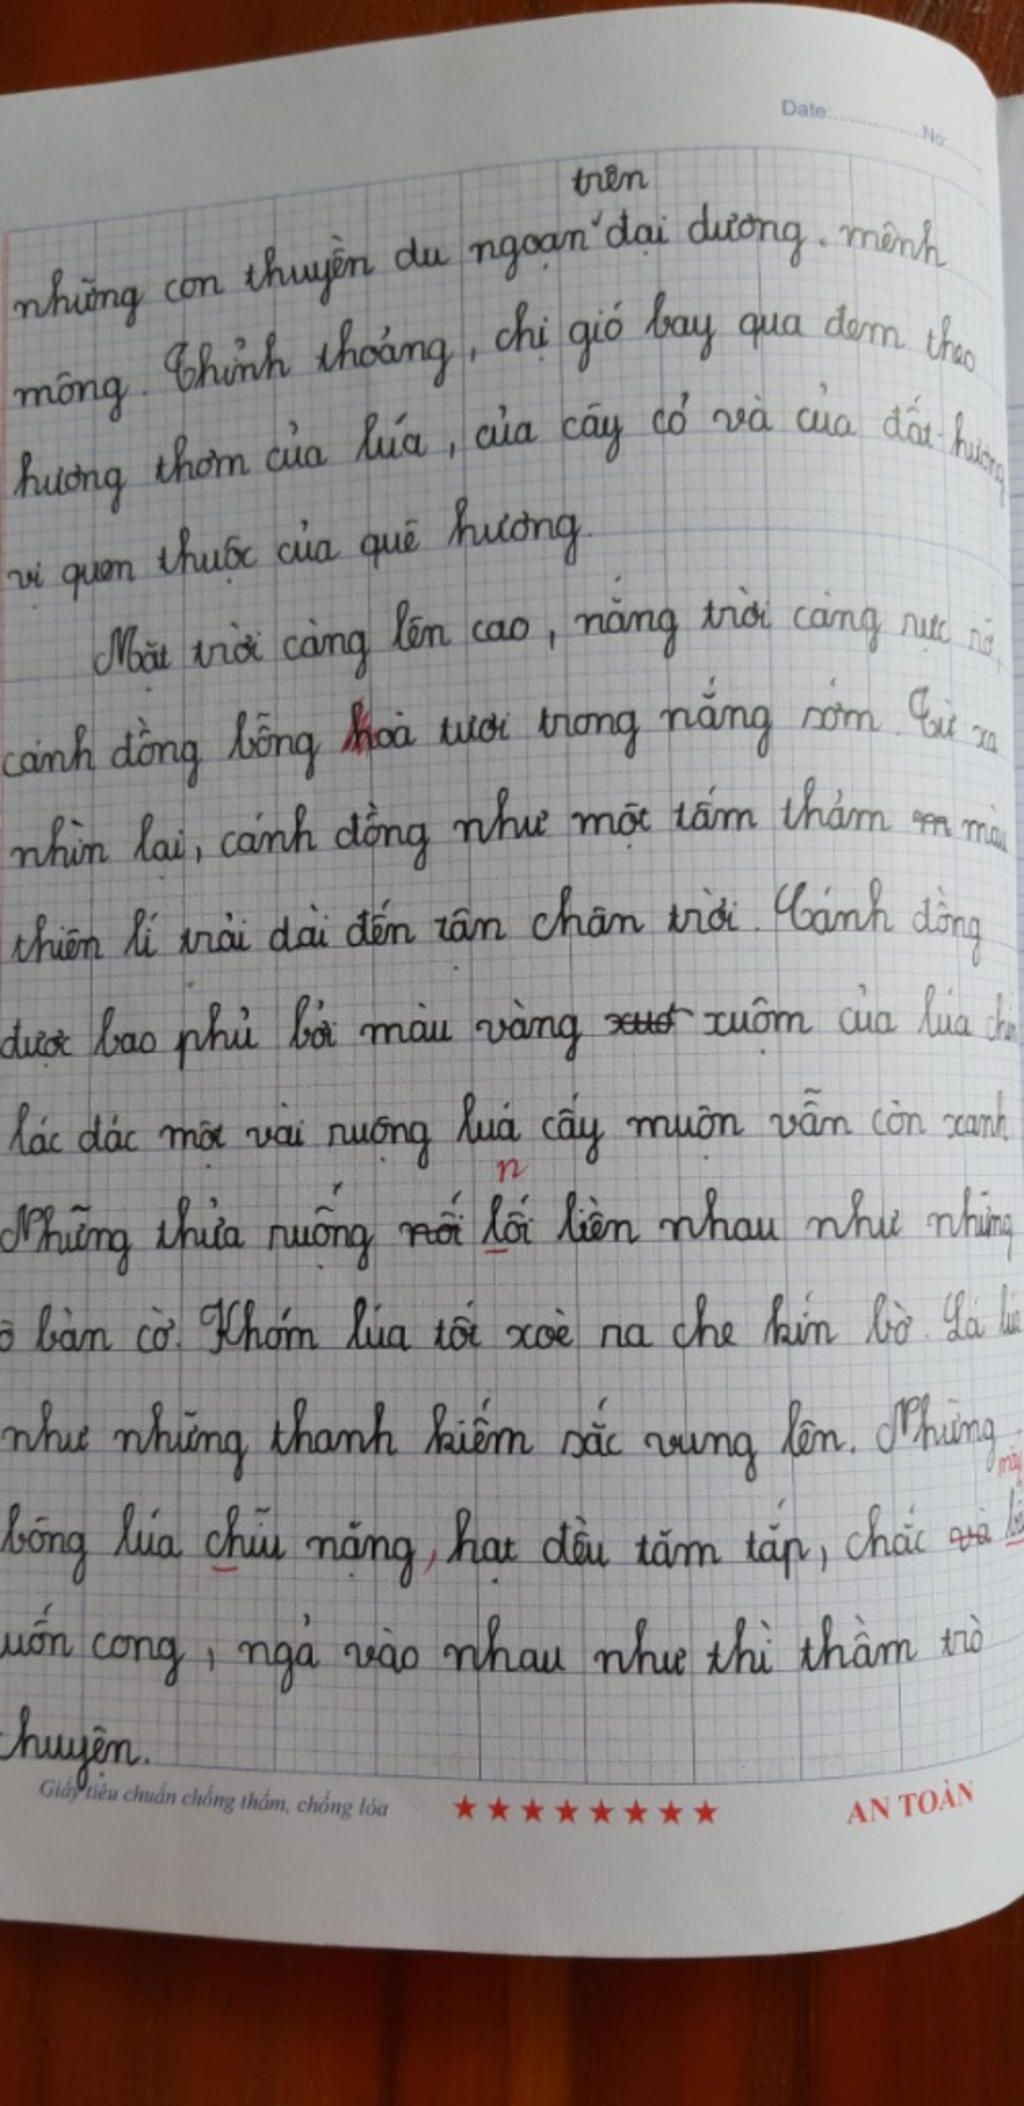 Date:................No:
trên
những con thuyền du ngoạn đại dương. mênh
mông. Thỉnh thoảng, chị gió bay qua đem theo
hương thơm của lúa, của cây cỏ và của đất-hương
vị quen thuộc của quê hương.
Mặt trời càng lên cao, nắng trời càng rực rỡ,
cánh đồng bỗng hoà tươi trong nắng sớm. Từ xa
nhìn lại, cánh đồng như một tấm thảm m màu
thiên lí trải dài đến tận chân trời. Cánh đồng
được bao phủ bởi màu vàng xuộm của lúa chín
lác đác một vài ruộng luá cấy muộn vẫn còn xanh
n
Những thửa ruộng nối lối liền nhau như những
ô bàn cờ. Khóm lúa tốt xoè na che kín bờ. Lá lúa
như những thanh kiếm sắc vung lên. Những
mẩy
bông lúa chĩu nặng, hạt đều tăm tắp, chắc và
uốn cong, ngả vào nhau như thì thầm trò
chuyện.
Giấy tiêu chuẩn chống thấm, chống lóa ★★★★★★★★ AN TOÀN